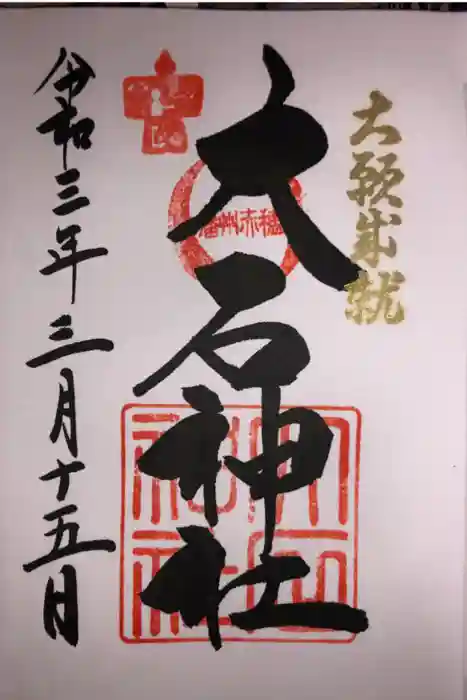 大願成就
播州赤穂
大石神社
令和三年三月十五日